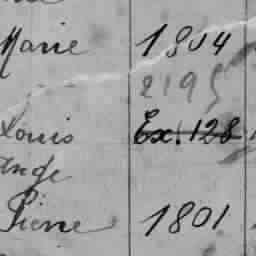 Marie 1804
2195
Louis Ex. 128
Ange
Pierre 1801